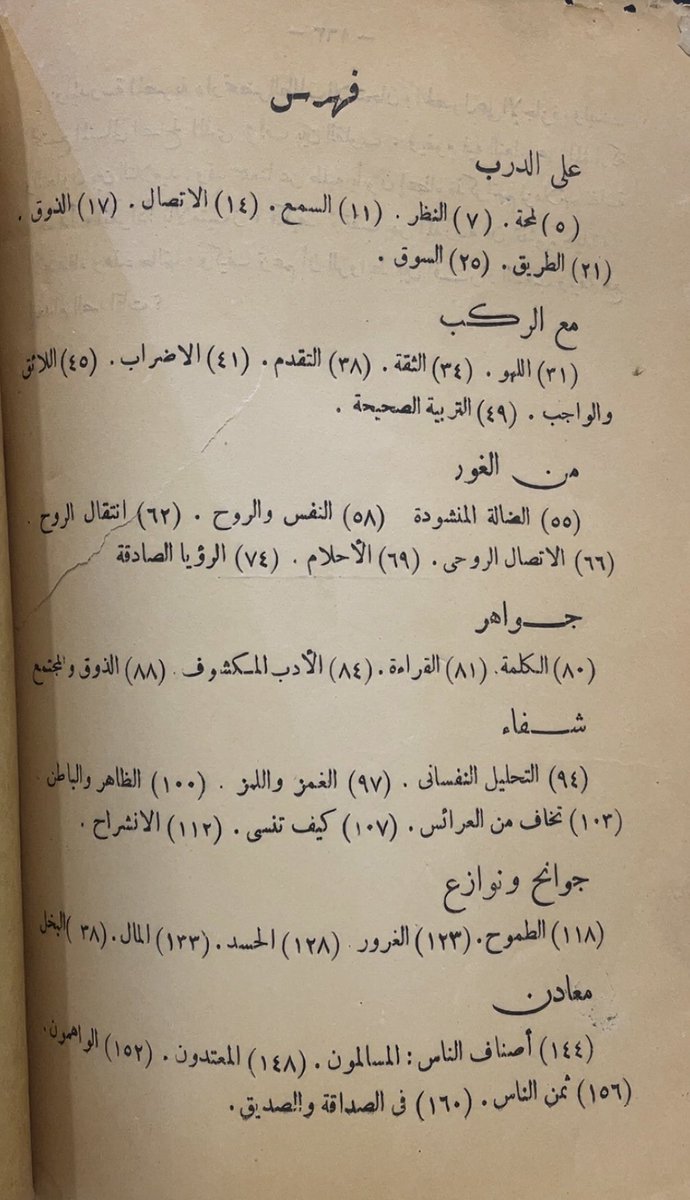 فهرس
على الدرب
(٥) لمحة. (٧) النظر. (١١) السمع. (١٤) الاتصال. (١٧) الذوق.
(٢١) الطريق. (٢٥) السوق.
مع الركب
(٣١) اللهو. (٣٤) الثقة. (٣٨) التقدم. (٤١) الاضراب. (٤٥) اللائق
والواجب. (٤٩) التربية الصحيحة.
من الغور
(٥٥) الضالة المنشودة (٥٨) النفس والروح. (٦٢) انتقال الروح.
(٦٦) الاتصال الروحى. (٦٩) الأحلام. (٧٤) الرؤيا الصادقة
جواهر
(٨٠) الكلمة. (٨١) القراءة. (٨٤) الأدب المكشوف. (٨٨) الذوق والمجتمع
شفاء
(٩٤) التحليل النفسانى. (٩٧) الغمز واللمز. (١٠٠) الظاهر والباطن.
(١٠٣) تخاف من العرائس. (١٠٧) كيف تنسى. (١١٢) الانشراح.
جوانح ونوازع
(١١٨) الطموح. (١٢٣) الغرور (١٢٨) الحسد. (١٣٣) المال. (٣٨ ) البخل
معادن
(١٤٤) أصناف الناس: المسالمون. (١٤٨) المعتدون. (١٥٢) الواهمون.
(١٥٦) ثمن الناس. (١٦٠) فى الصداقة والصديق.